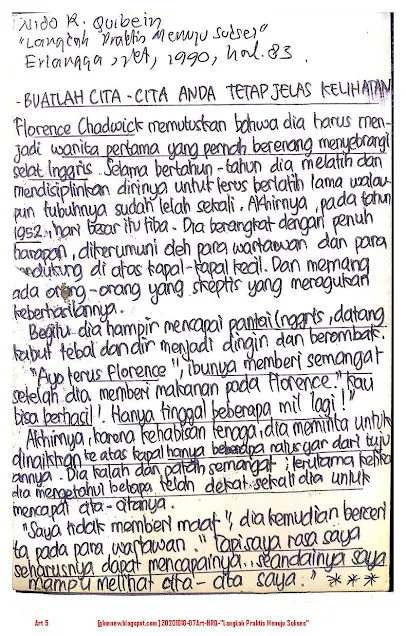 Nido R. Qubein
"Langkah Praktis Menuju Sukses"
Erlangga, Jkt, 1990, hal. 83.
- BUATLAH CITA-CITA ANDA TETAP JELAS KELIHATAN
Florence Chadwick memutuskan bahwa dia harus men-
jadi wanita pertama yang pernah berenang menyebrangi
selat Inggris. Selama bertahun-tahun dia melatih dan
mendisiplinkan dirinya untuk terus berlatih lama walau-
pun tubuhnya sudah lelah sekali. Akhirnya, pada tahun
1952, hari besar itu tiba. Dia berangkat dengan penuh
harapan, dikerumuni oleh para wartawan dan para
pendukung di atas kapal-kapal kecil. Dan memang
ada orang-orang yang skeptis yang meragukan
keberhasilannya.
Begitu dia hampir mencapai pantai Inggris, datang
kabut tebal dan air menjadi dingin dan berombak.
"Ayo terus Florence", ibunya memberi semangat
setelah dia memberi makanan pada Florence." Kau
bisa berhasil! Hanya tinggal beberapa mil lagi!"
Akhirnya, karena kehabisan tenaga, dia meminta untuk
dinaikkan ke atas kapal hanya beberapa ratus yar dari tuju
annya. Dia kalah dan patah semangat, terutama ketika
dia mengetahui betapa telah dekat sekali dia untuk
mencapai cita-citanya.
"Saya tidak memberi maaf", dia kemudian berceri
ta pada para wartawan. "Tapi saya rasa saya
seharusnya dapat mencapainya.. seandainya saya
mampu melihat cita-cita saya." ***
Art 5 [gbmnew.blogspot.com] 20201018-07Art-NRQ-"Langkah Praktis Menuju Sukses"